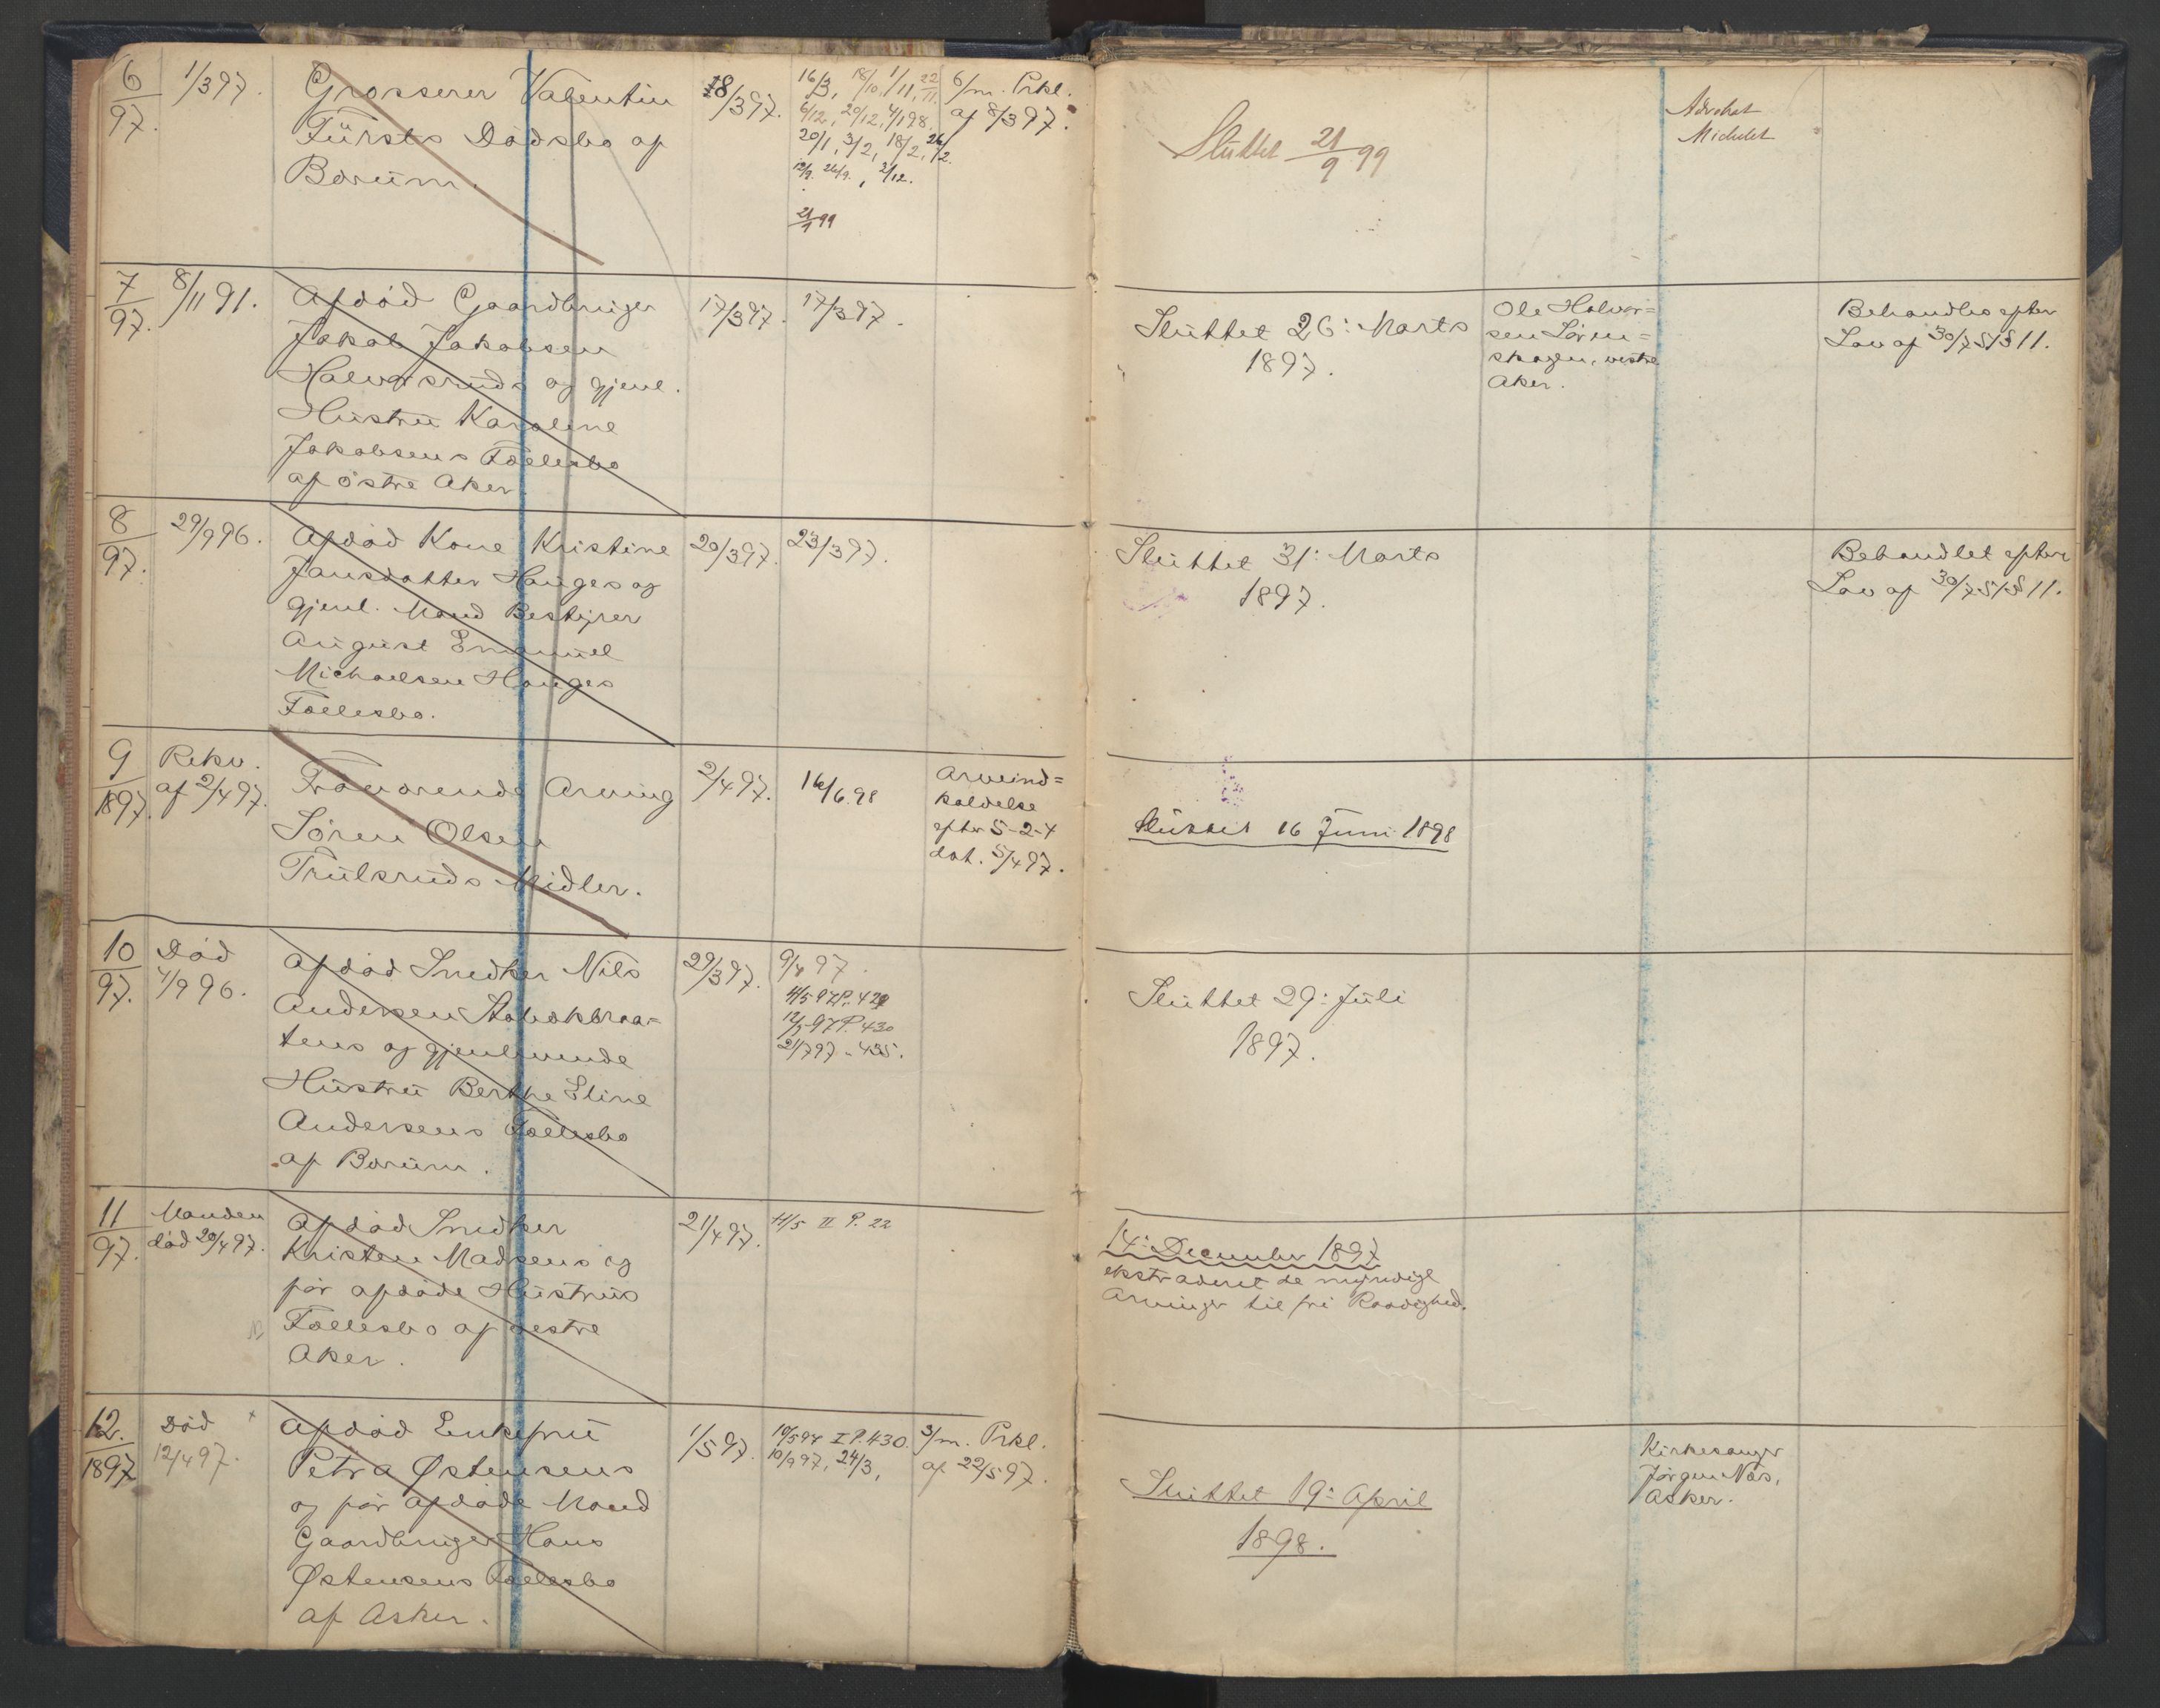 6/97. 1/3 97. Grosserer Valentin 18/3 97. 16/3, 18/10, 1/11, 22/11. 6/m. Prkl.
Fürsts Dødsbo af 6/12, 20/12, 4/1 98. af 8/3 97.
Bærum. 20/1, 3/2, 18/2, 26/2.
12/9. 26/9., 2/12.
21/9 99
Sluttet 21/9 99
Advokat
Michelet
7/97. 8/11 91. Afdød Gaardbruger 17/3 97. 17/3 97.
Jakob Jakobsen
Halvorsruds og gjenl.
Hustru Karoline
Jakobsens Fællesbo
af østre Aker.
Sluttet 26: Marts
1897.
Ole Halvor=
sen Sörm=
skogen, vestre
Aker.
Behandles efter
Lov af 30/7 51 § 11.
8/97. 29/9 96. Afdød Kone Kristine 20/3 97. 23/3 97.
Jansdatter Hauges og
gjenl. Mand Bestyrer
August Emanuel
Michaelsen Hauges
Fællesbo.
Sluttet 31: Marts
1897.
Behandlet efter
Lov af 30/7 51 § 11.
9/1897. Rekv.
af 2/4 97. Fraværende Arving 2/4 97. 16/6. 98
Søren Olsen
Trulsruds Midler.
Arveind=
kaldelse
efter 5-2-4
dat. 5/4 97.
Sluttet 16 Juni 1898
10/97. Død
4/9 96. Afdød Snedker Nils 29/3 97. 9/4 97.
Andersen Stabekbraa= 4/5 97 P. 429
tens og gjenlevende 12/5 97 P. 430
Hustru Berthe Eline 21/7 97 - 435.
Andersens Fællesbo
af Bærum.
Sluttet 29: Juli
1897.
11/97. Manden
død 20/4 97. Afdød Snedker 21/4 97. 4/5 II P. 22
Kristen Madsens og
før afdøde Hustrus
Fællesbo af vestre
Aker.
14: December 1897
ekstraderet de myndige
Arvinger til fri Raadighed.
12./1897 Død
12/4 97. Afdød Enkefru 1/5 97. 10/5 97 I P. 430. 3/m. Prkl.
Petra Østensens 10/9 97, 24/3, af 22/5 97.
og før afdøde Mand
Gaardbruger Hans
Østensens Fællesbo
af Asker.
Sluttet 19: April
1898.
Kirkesanger
Jørgen Næs,
Asker.